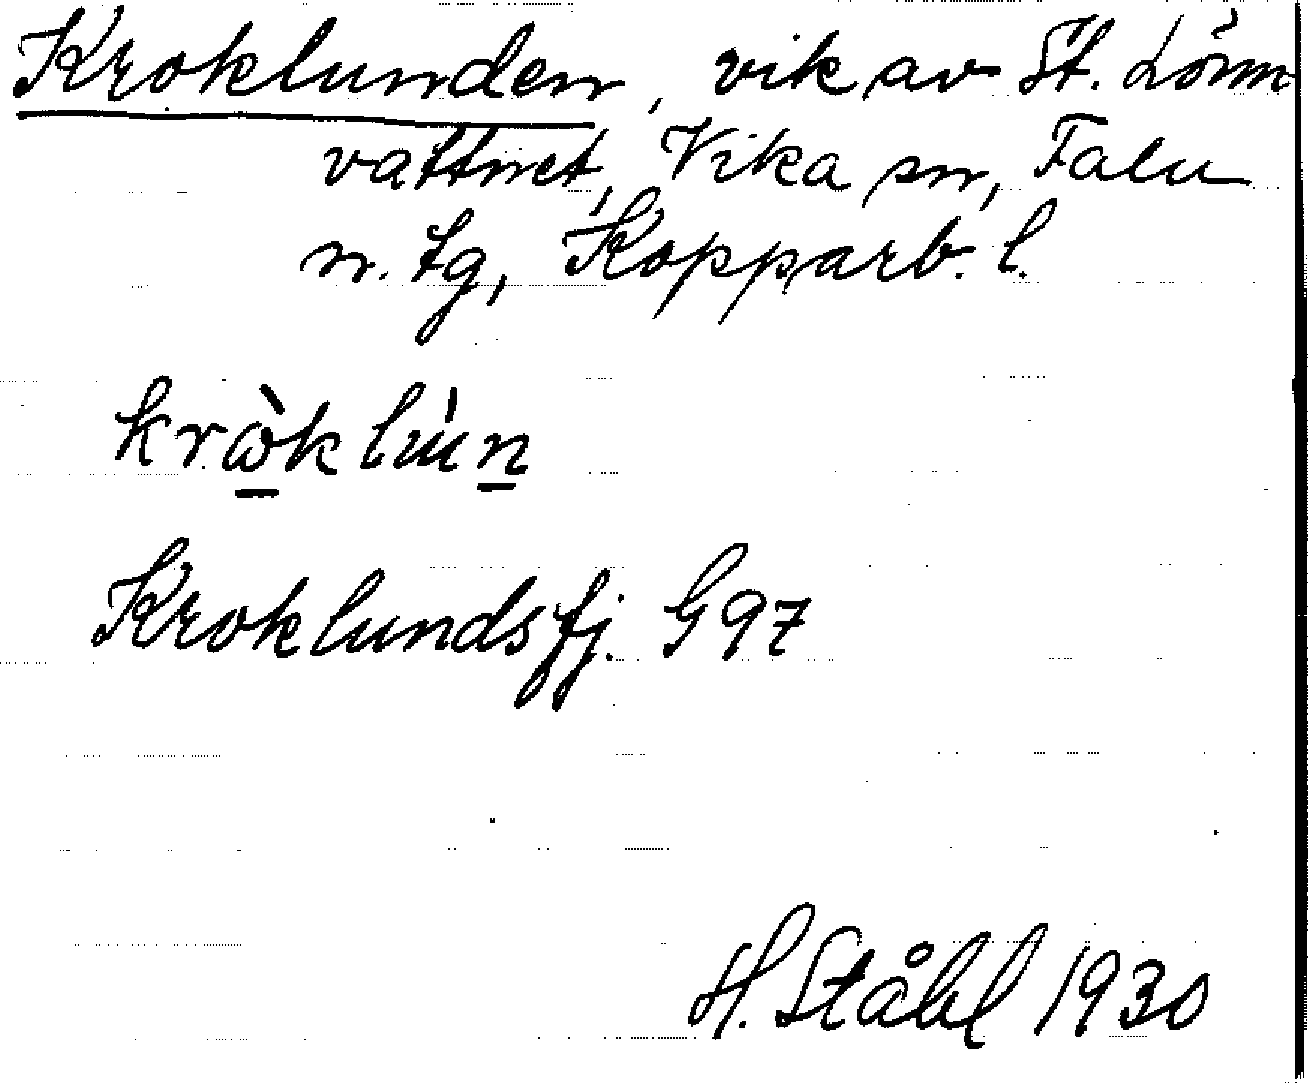 Kroklunden, vik av St. Lönn
vattnet, Vika sn, Falu
n. tg, Kopparb. l.
Kroklundsfj. G97
H. Ståhl 1930